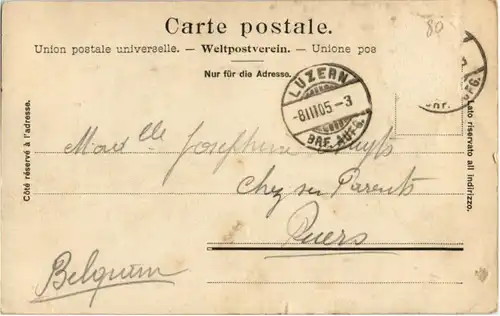 Carte postale.
80
Union postale universelle. — Weltpostverein. — Unione pos
Nur für die Adresse.
LUZERN
-8III05-3
BRF. AUFG.
BRF. AUFG.
Côté réservé à l'adresse.
Lato riservato all indirizzo.
Madelle Josephine
Chez ses Parents
Puers
Belgium